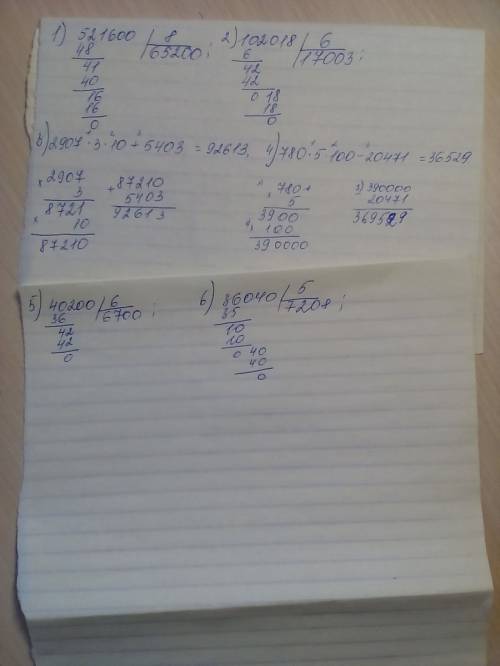 1) 521600 | 8 2) 102018 | 6
48 65200; 6 17003;
41 42
40 42
16 0 18
16 18
0 0
3) 2907 · 3 · 10 + 5403 = 92613, 4) 780 · 5 · 100 - 20471 = 36529
× 2907 + 87210 × 780 3) 390000
3 5403 5 20471
8721 92613 3900 369529
× 10 × 100
87210 390000
5) 40200 | 6 6) 36040 | 5
36 6700; 35 7208;
42 10
42 10
0 0 40
40
0